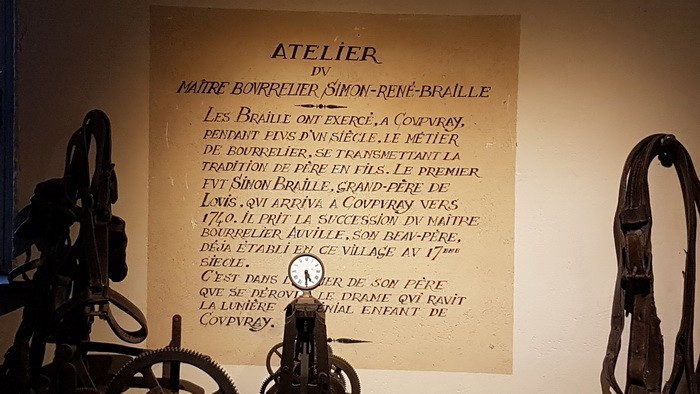 ATELIER
DV
MAÎTRE BOVRRELIER SIMON-RENÉ-BRAILLE
LES BRAILLE ONT EXERCÉ, A COVPVRAY,
PENDANT PLVS D'VN SIÈCLE, LE MÉTIER
DE BOVRRELIER, SE TRANSMETTANT LA
TRADITION DE PÈRE EN FILS. LE PREMIER
FVT SIMON BRAILLE, GRAND-PÈRE DE
LOVIS, QVI ARRIVA A COVPVRAY VERS
1740. IL PRIT LA SVCCESSION DV MAÎTRE
BOVRRELIER AUVILLE, SON BEAV-PÈRE,
DÉJA ÉTABLI EN CE VILLAGE AV 17ÈME
SIÈCLE.
C'EST DANS L IER DE SON PÈRE
QVE SE DÉROV LE DRAME QVI RAVIT
LA LVMIÈRE ÉNIAL ENFANT DE
COVPVRAY.